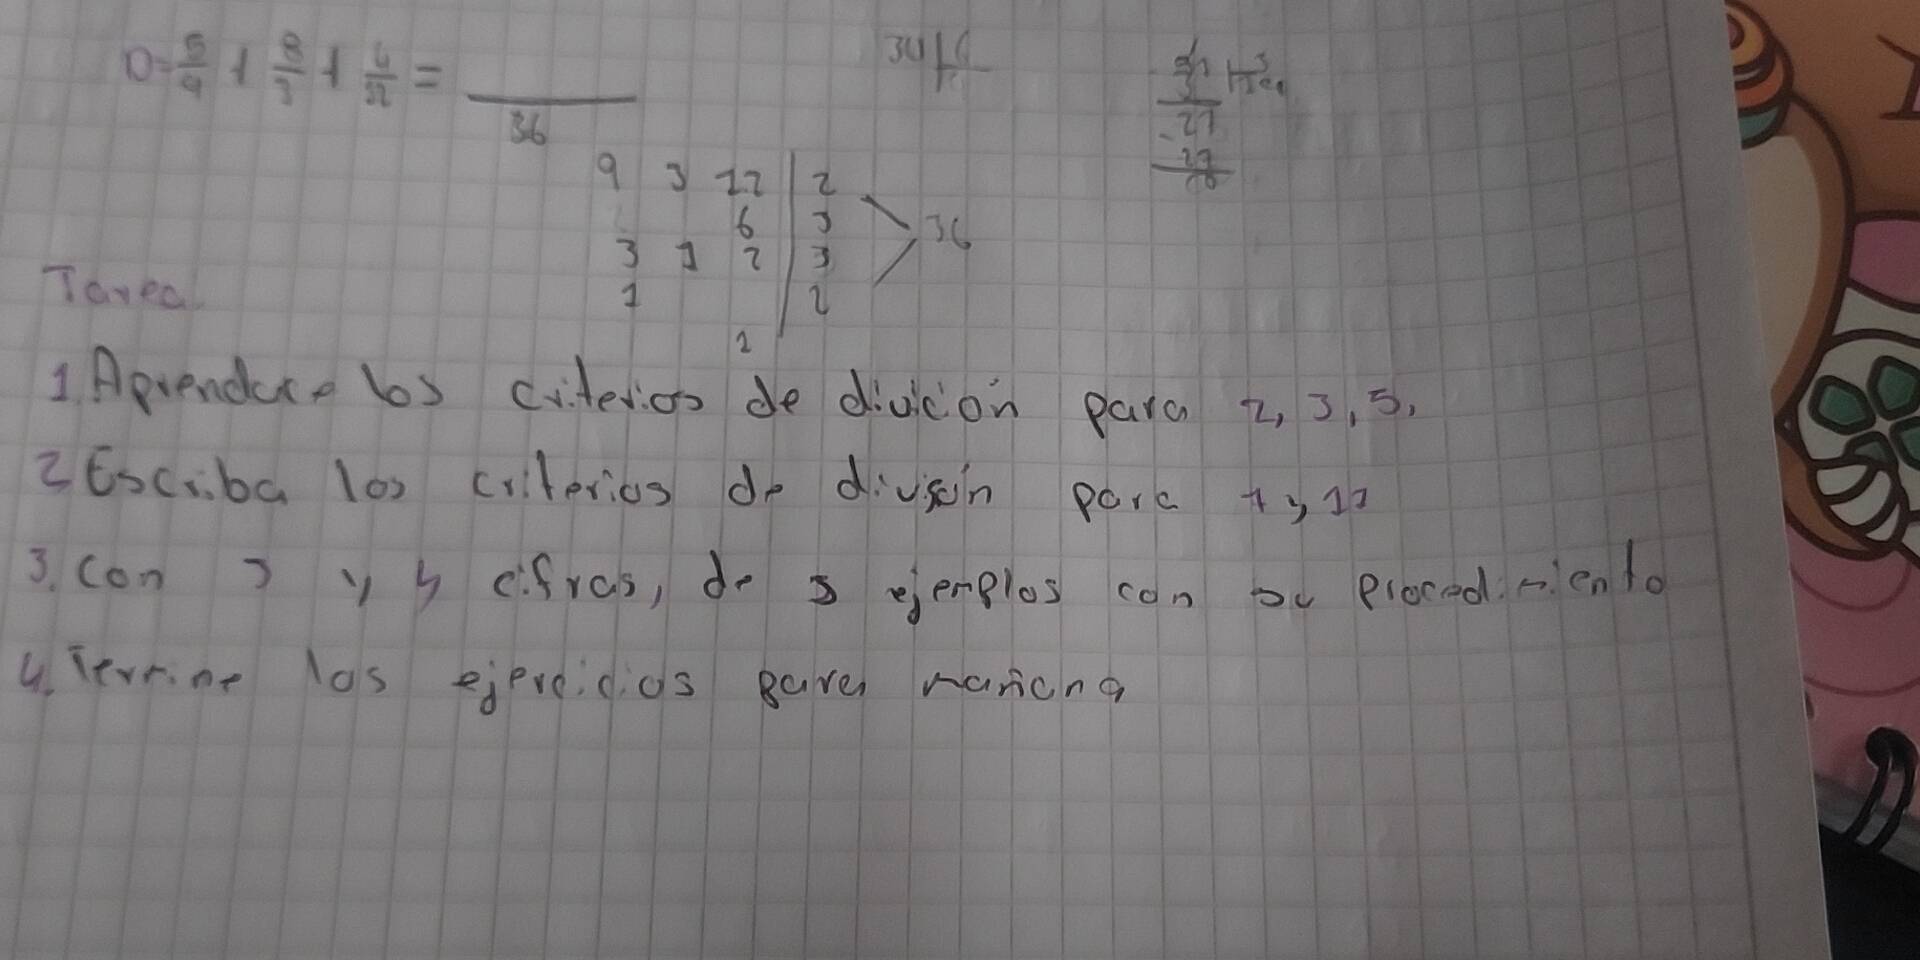 D= 5/9 + 8/3 + 4/12 = ___/36
9 3 12 | 2
6 | 3 36
3 1 2 | 3
1 | 2
1
27
27
Tarea
1. Aprendace los criterios de divición para 2, 3, 5,
2 Escriba los criterios de divisón para 7 y 11
3. Con 3 y 4 cifras, de 5 ejemplos con su procedimiento
4. Termine los ejercicios para mañana